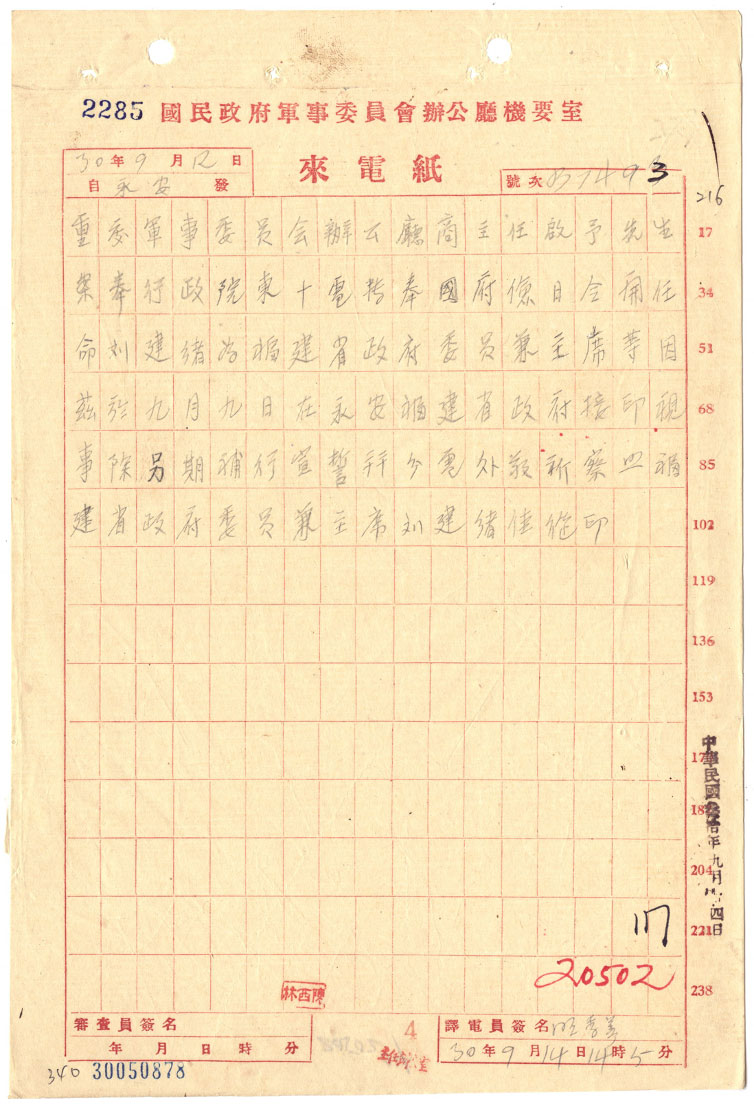 2285 國民政府軍事委員會辦公廳機要室
30年9月12日
自永安發
來電紙
號次
3
216
重委軍事委員会辦公廳商主任啟予先生 17
案奉行政院東十電持奉國府儉日令開任 34
命刘建緒為福建省政府委员兼主席等因 51
兹於九月九日在永安福建省政府接印視 68
事除另期補行宣誓并分電外敬祈察照福 85
建省政府委员兼主席刘建緒佳 印 102
119
136
153
204
221
238
中華民國 年九月 四日
20502
陳西林
審查員簽名
年 月 日 時 分
4
譯電員簽名
30年9月14日14時5分
340 30050878